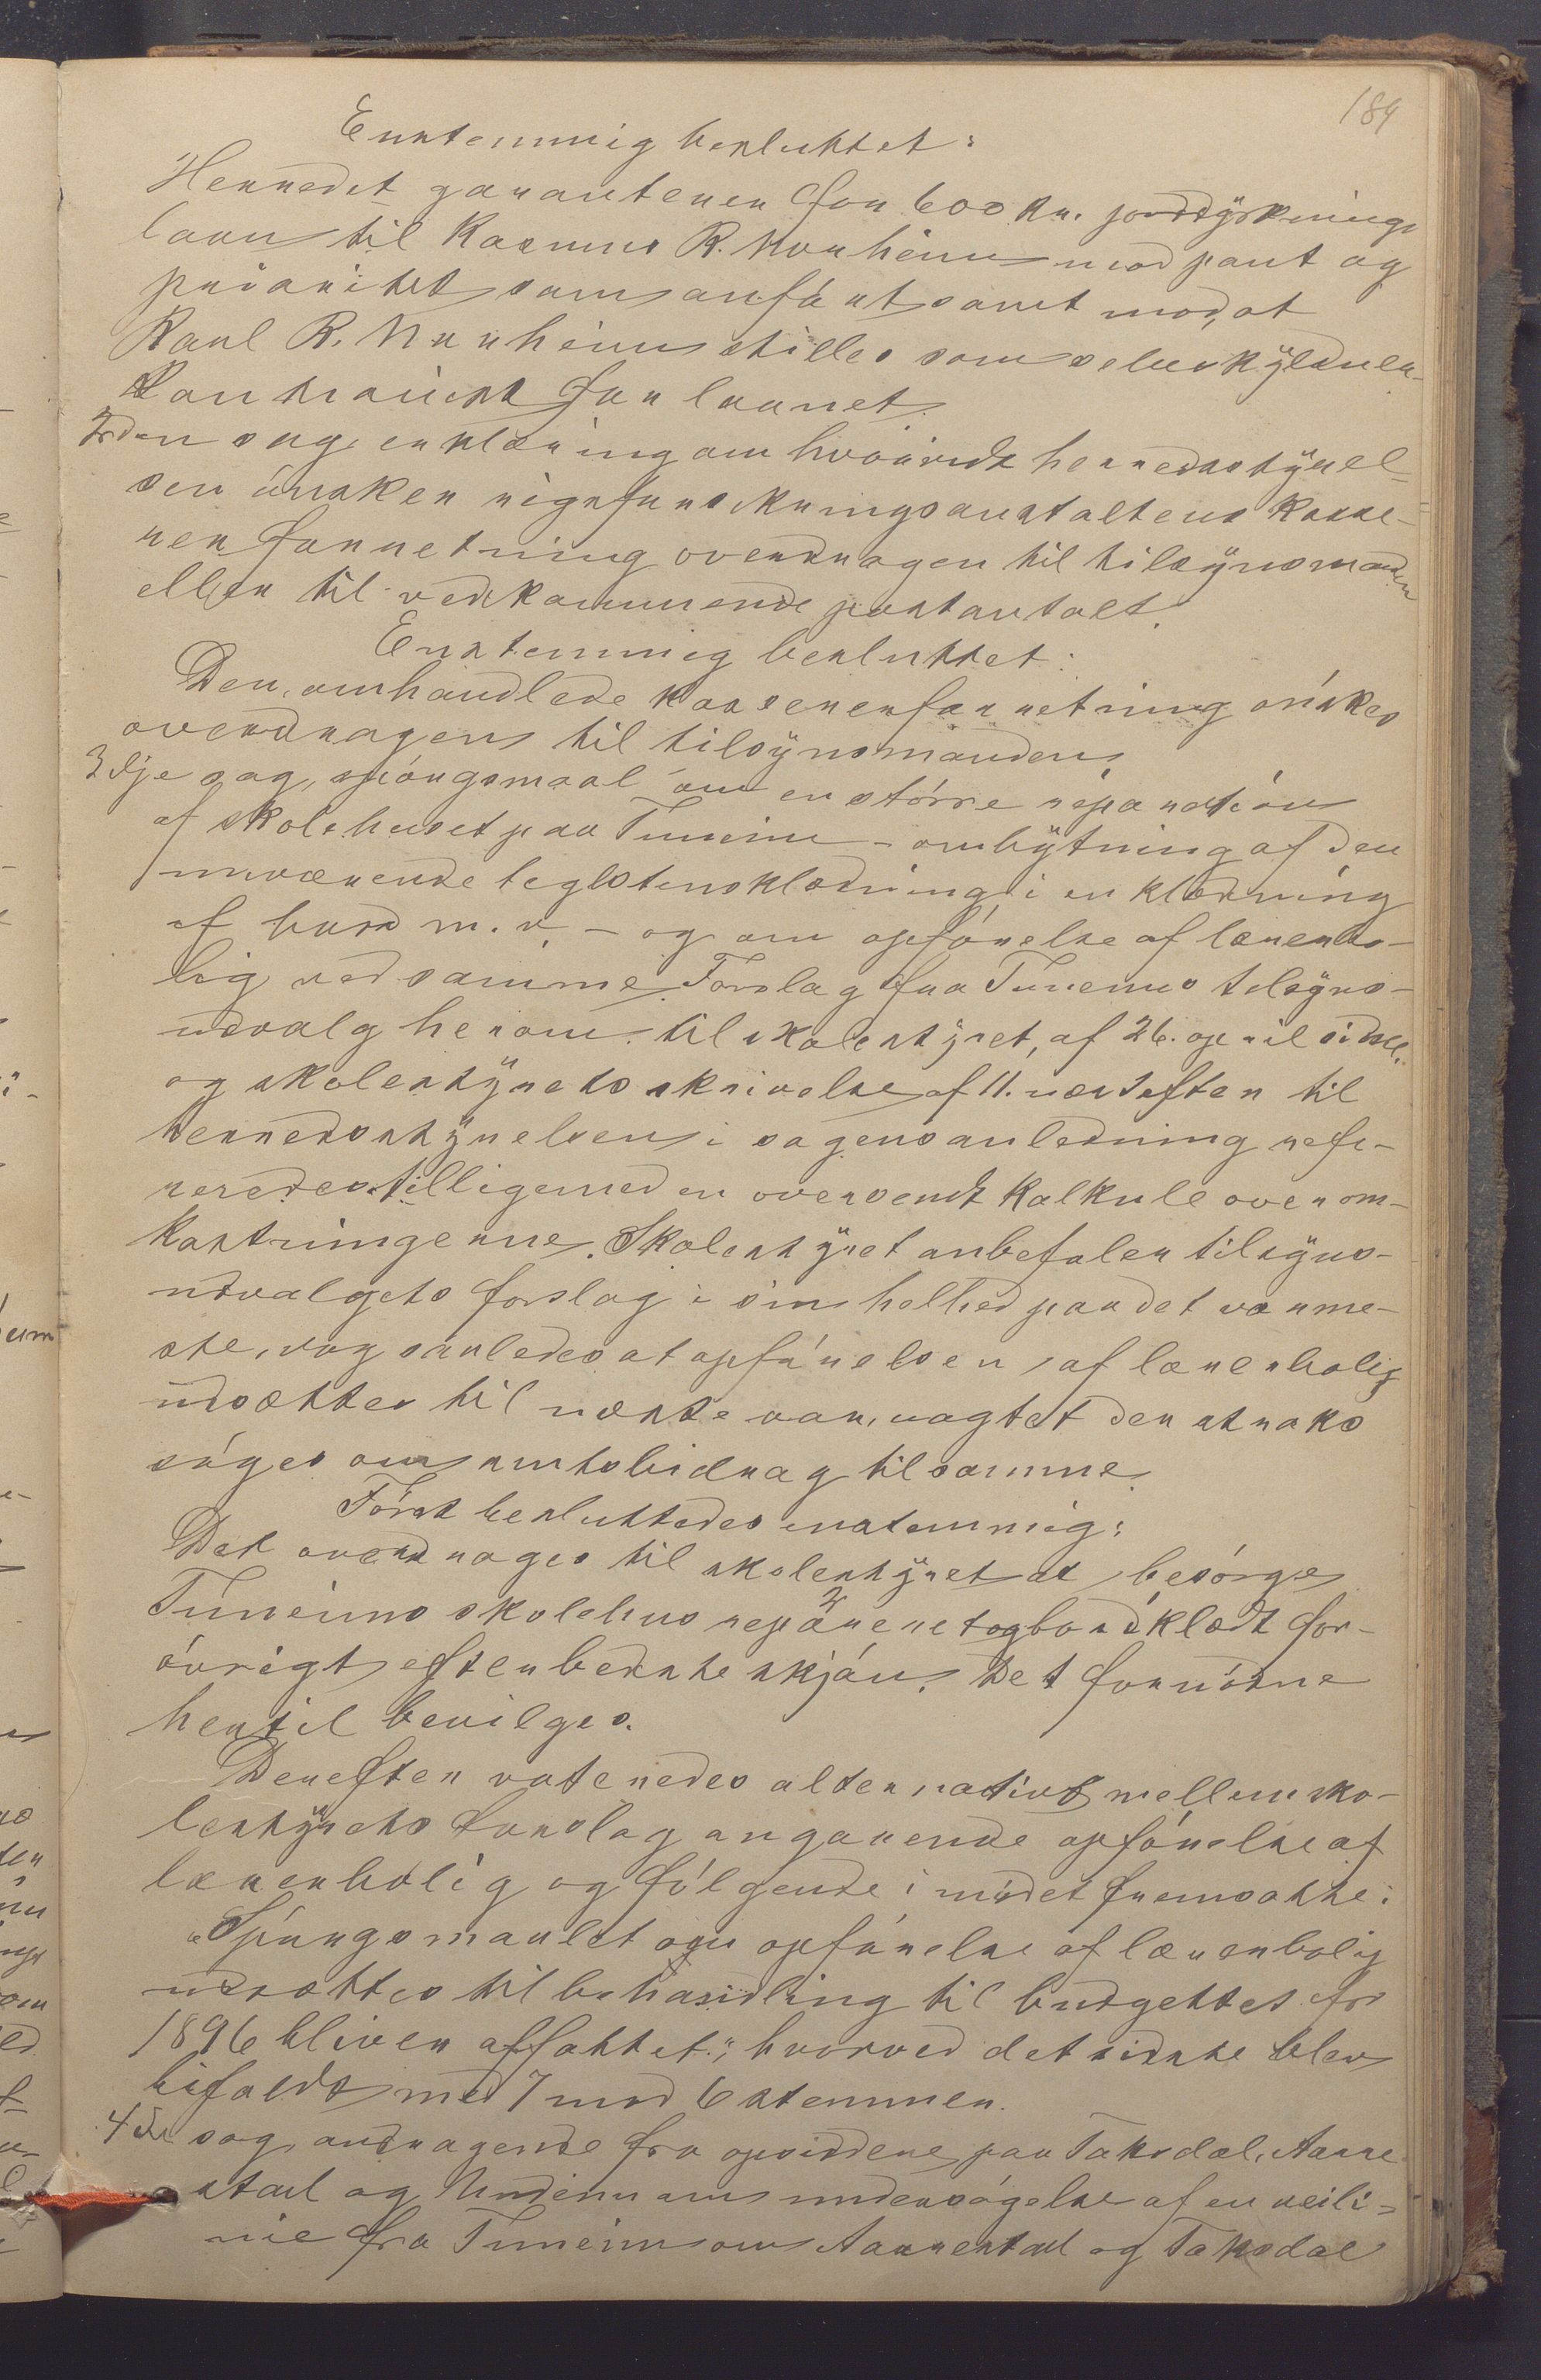 189
Enstemmig besluttet:
Herredet garanterer for 600 kr. jorddyrknings
laan til Rasmus R. Norheim mod pant og
prioritet som anført samt mod, at
Karl R. Norheim stilles som selvskyldner-
kautionist for laanet.
2den sag, erklæring om hvorvidt herredsstyrel-
sen ønsker rigsforsikringsanstaltens kasse-
rerforretning overdragen til tilsynsmanden
eller til vedkommende postanstalt.
Enstemmig besluttet:
Den omhandlede kassererforretning ønskes
overdragen til tilsynsmanden.
3dje sag, spørgsmaal om en større reparation
af skolehuset paa Tuneim – ombytning af den
nuværende teglstensklædning i en klædning
af bord m. v. – og om opførelse af lærerbo-
lig ved samme. Forslag fra Tuneims tilsyns-
udvalg herom til skolestyret, af 26. april sidstl.
og skolestyrets skrivelse af 11. næstefter til
herredsstyrelsen i sagens anledning refe-
reredes tilligemed en oversendt kalkule over om-
kostningerne. Skolestyret anbefaler tilsyns-
udvalgets forslag i sin helhed paa det varme-
ste, dog saaledes at opførelsen af lærerbolig
udsættes til næste aar, uagtet der straks
søges om amtsbidrag til samme.
Først besluttedes enstemmig:
Det overdrages til skolestyret at besørge
Tuneims skolehus repareret og bordklædt for-
øvrigt efter bedste skjøn. Det fornødne
hertil bevilges.
Derefter voteredes alternativt mellem sko-
lestyrets forslag angaaende opførelse af
lærerbolig og følgende i mødet fremsatte:
„Spørgsmaalet om opførelse af lærerbolig
udsættes til behandling til budgettet for
1896 bliver affattet“; hvorved det sidste blev
bifaldt med 7 mod 6 stemmer.
4de sag, andragende fra opsidderne paa Taksdal, Aarre
stad og Undeim om undersøgelse af en veili-
nie fra Tuneim om Aarrestad og Taksdal